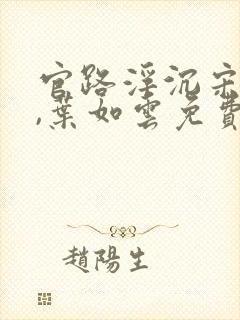 官路淫沉宋
,葉如雲免費
趙陽生